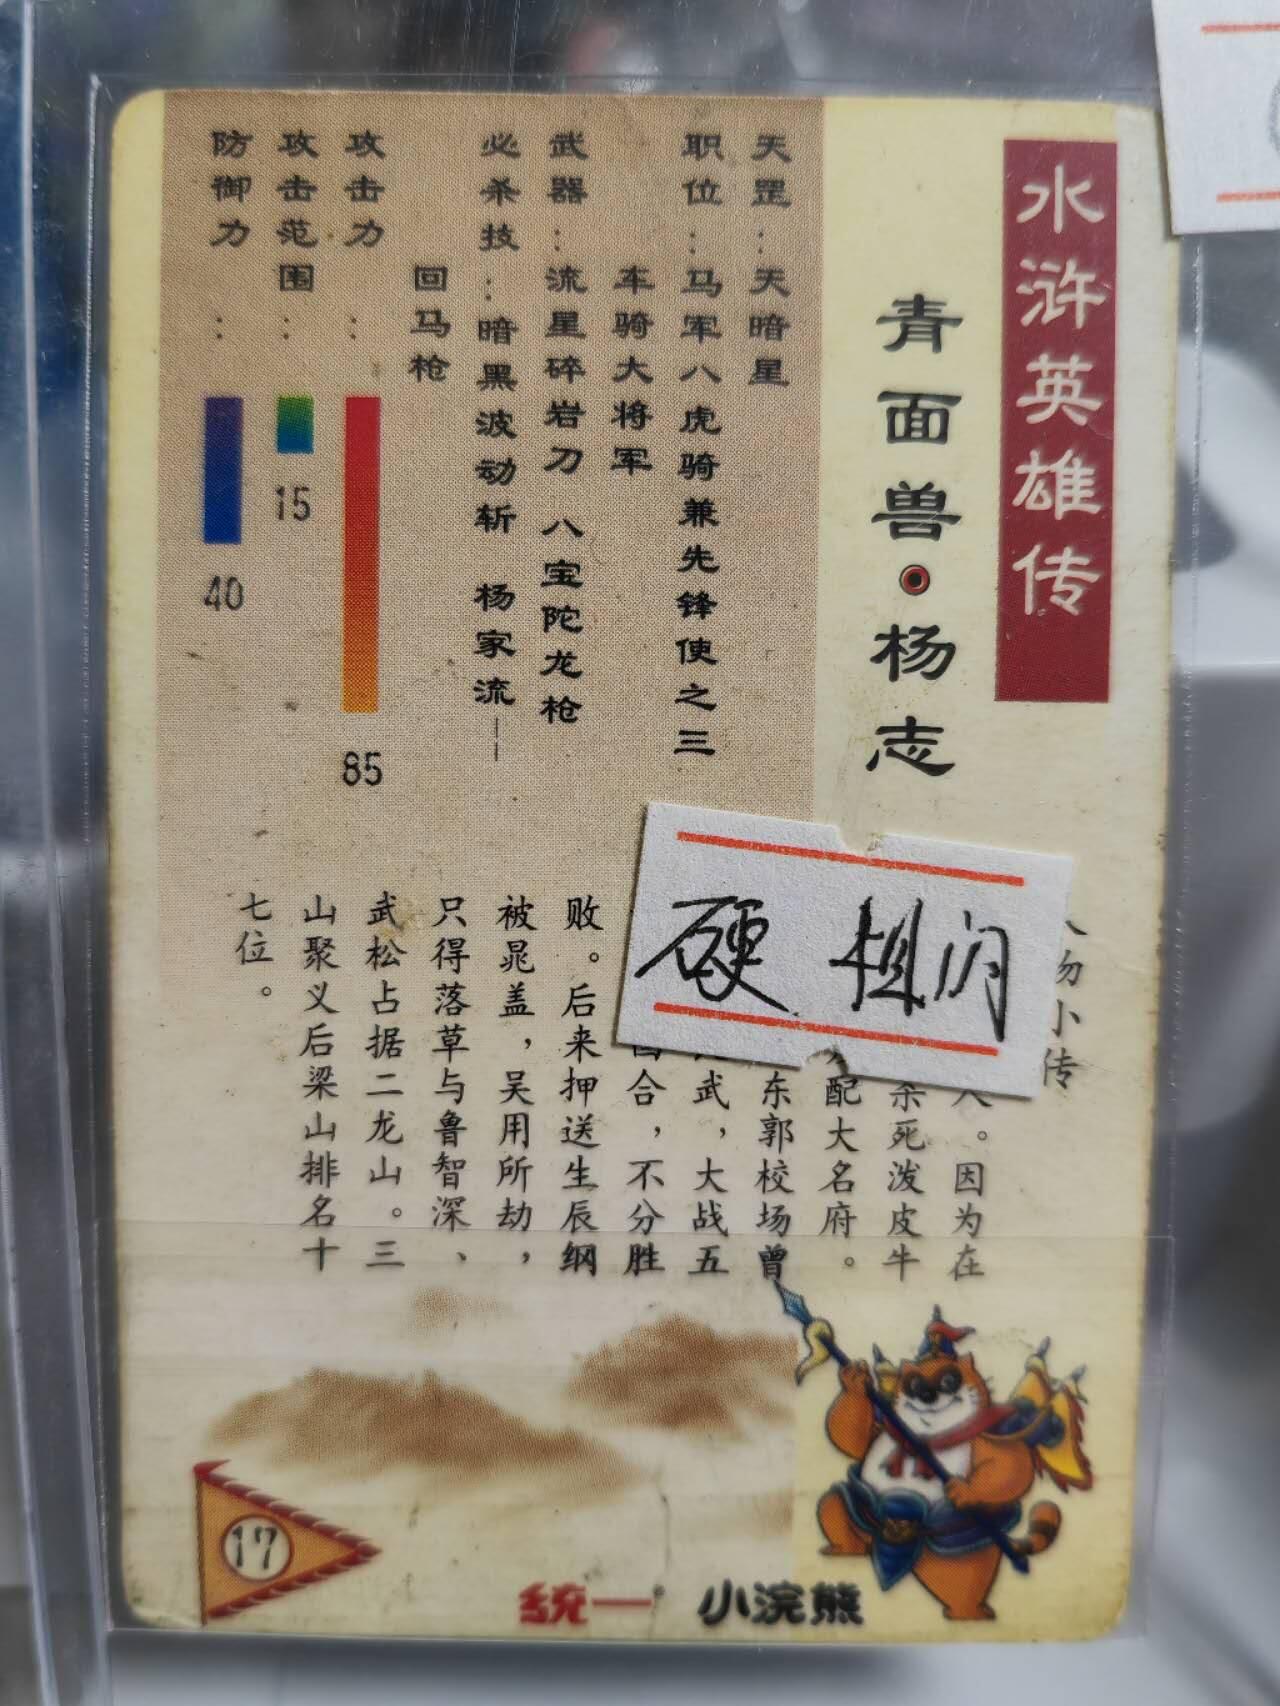 水浒英雄传
青面兽·杨志
天罡：天暗星
职位：马军八虎骑兼先锋使之三
车骑大将军
武器：流星碎岩刀 八宝陀龙枪
必杀技：暗黑波动斩 杨家流——
回马枪
攻击力：85
攻击范围：15
防御力：40
硬 折闪
物小传
人。因为在
杀死泼皮牛
配大名府。
东郭校场曾
武，大战五
合，不分胜
败。后来押送生辰纲
被晁盖，吴用所劫，
只得落草与鲁智深、
武松占据二龙山。三
山聚义后梁山排名十
七位。
17
统一 小浣熊